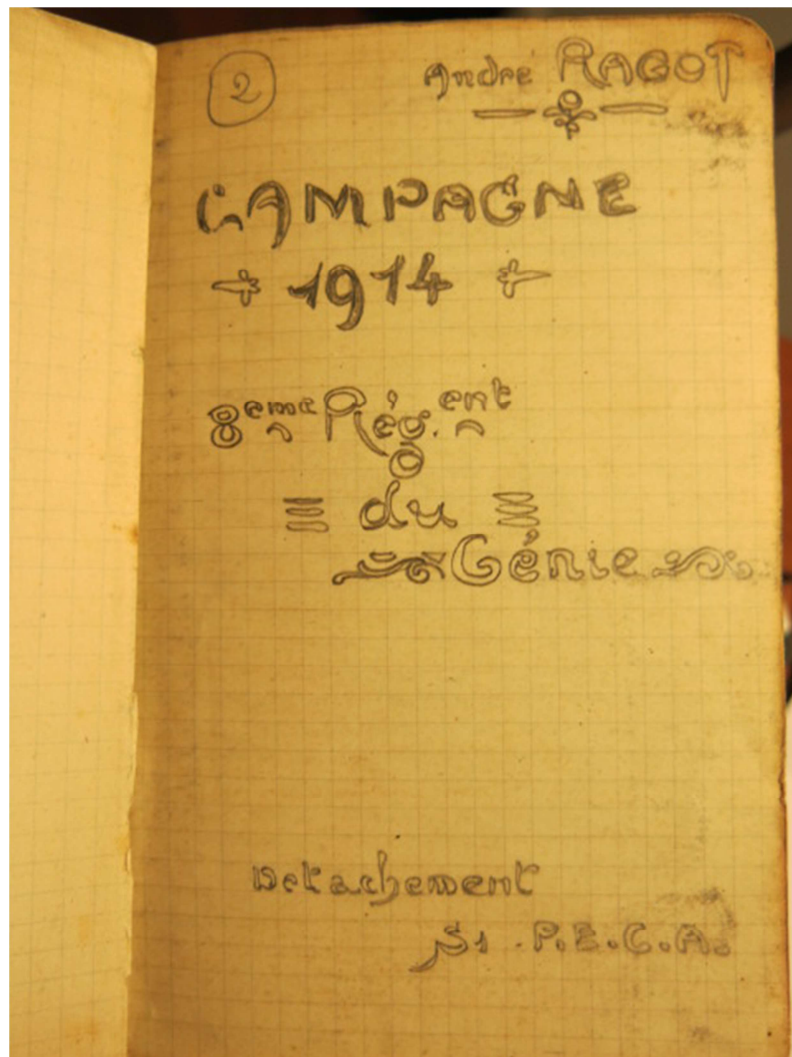 2
André RAGOT
CAMPAGNE
1914
8eme Rég.ent
du
Génie
Détachement
S1 . P.E.C.A.